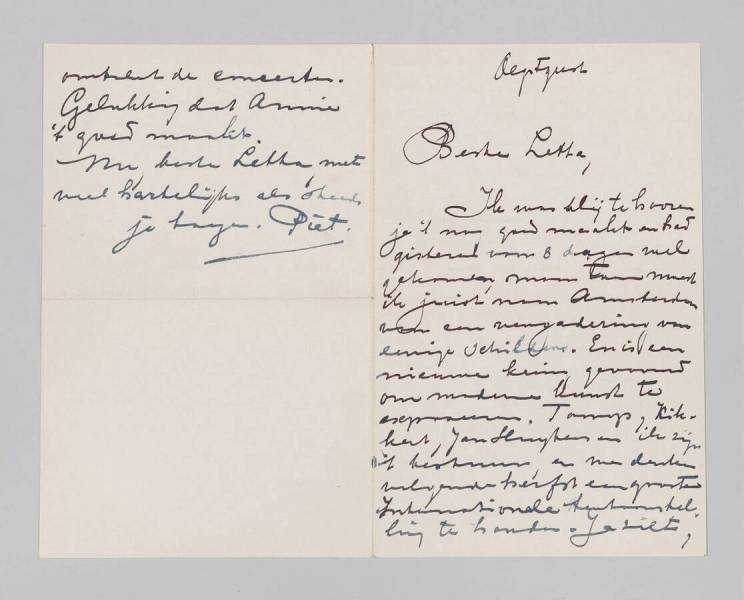 omtrent de concerten.
Gelukkig dat Annie
't goed maakt.
Nu, beste Letta, met
veel hartelijks als steeds
je toegen. Piet.
Oegstgeest
Beste Letta,
Ik was blij te hooren
je 't nu goed maakt en had
gisteren voor 8 dagen wel
gekomen, maar toen moest
ik juist naar Amsterdam
voor een vergadering van
eenige schilders. Er is een
nieuwe kring gevormd
om moderne kunst te
exposeeren. Toorop, Kik-
kert, Jan Sluyters en ik zijn
't bestuur, en we denken
volgende herfst een groote
Internationale tentoonstel-
ling te houden. Je ziet,